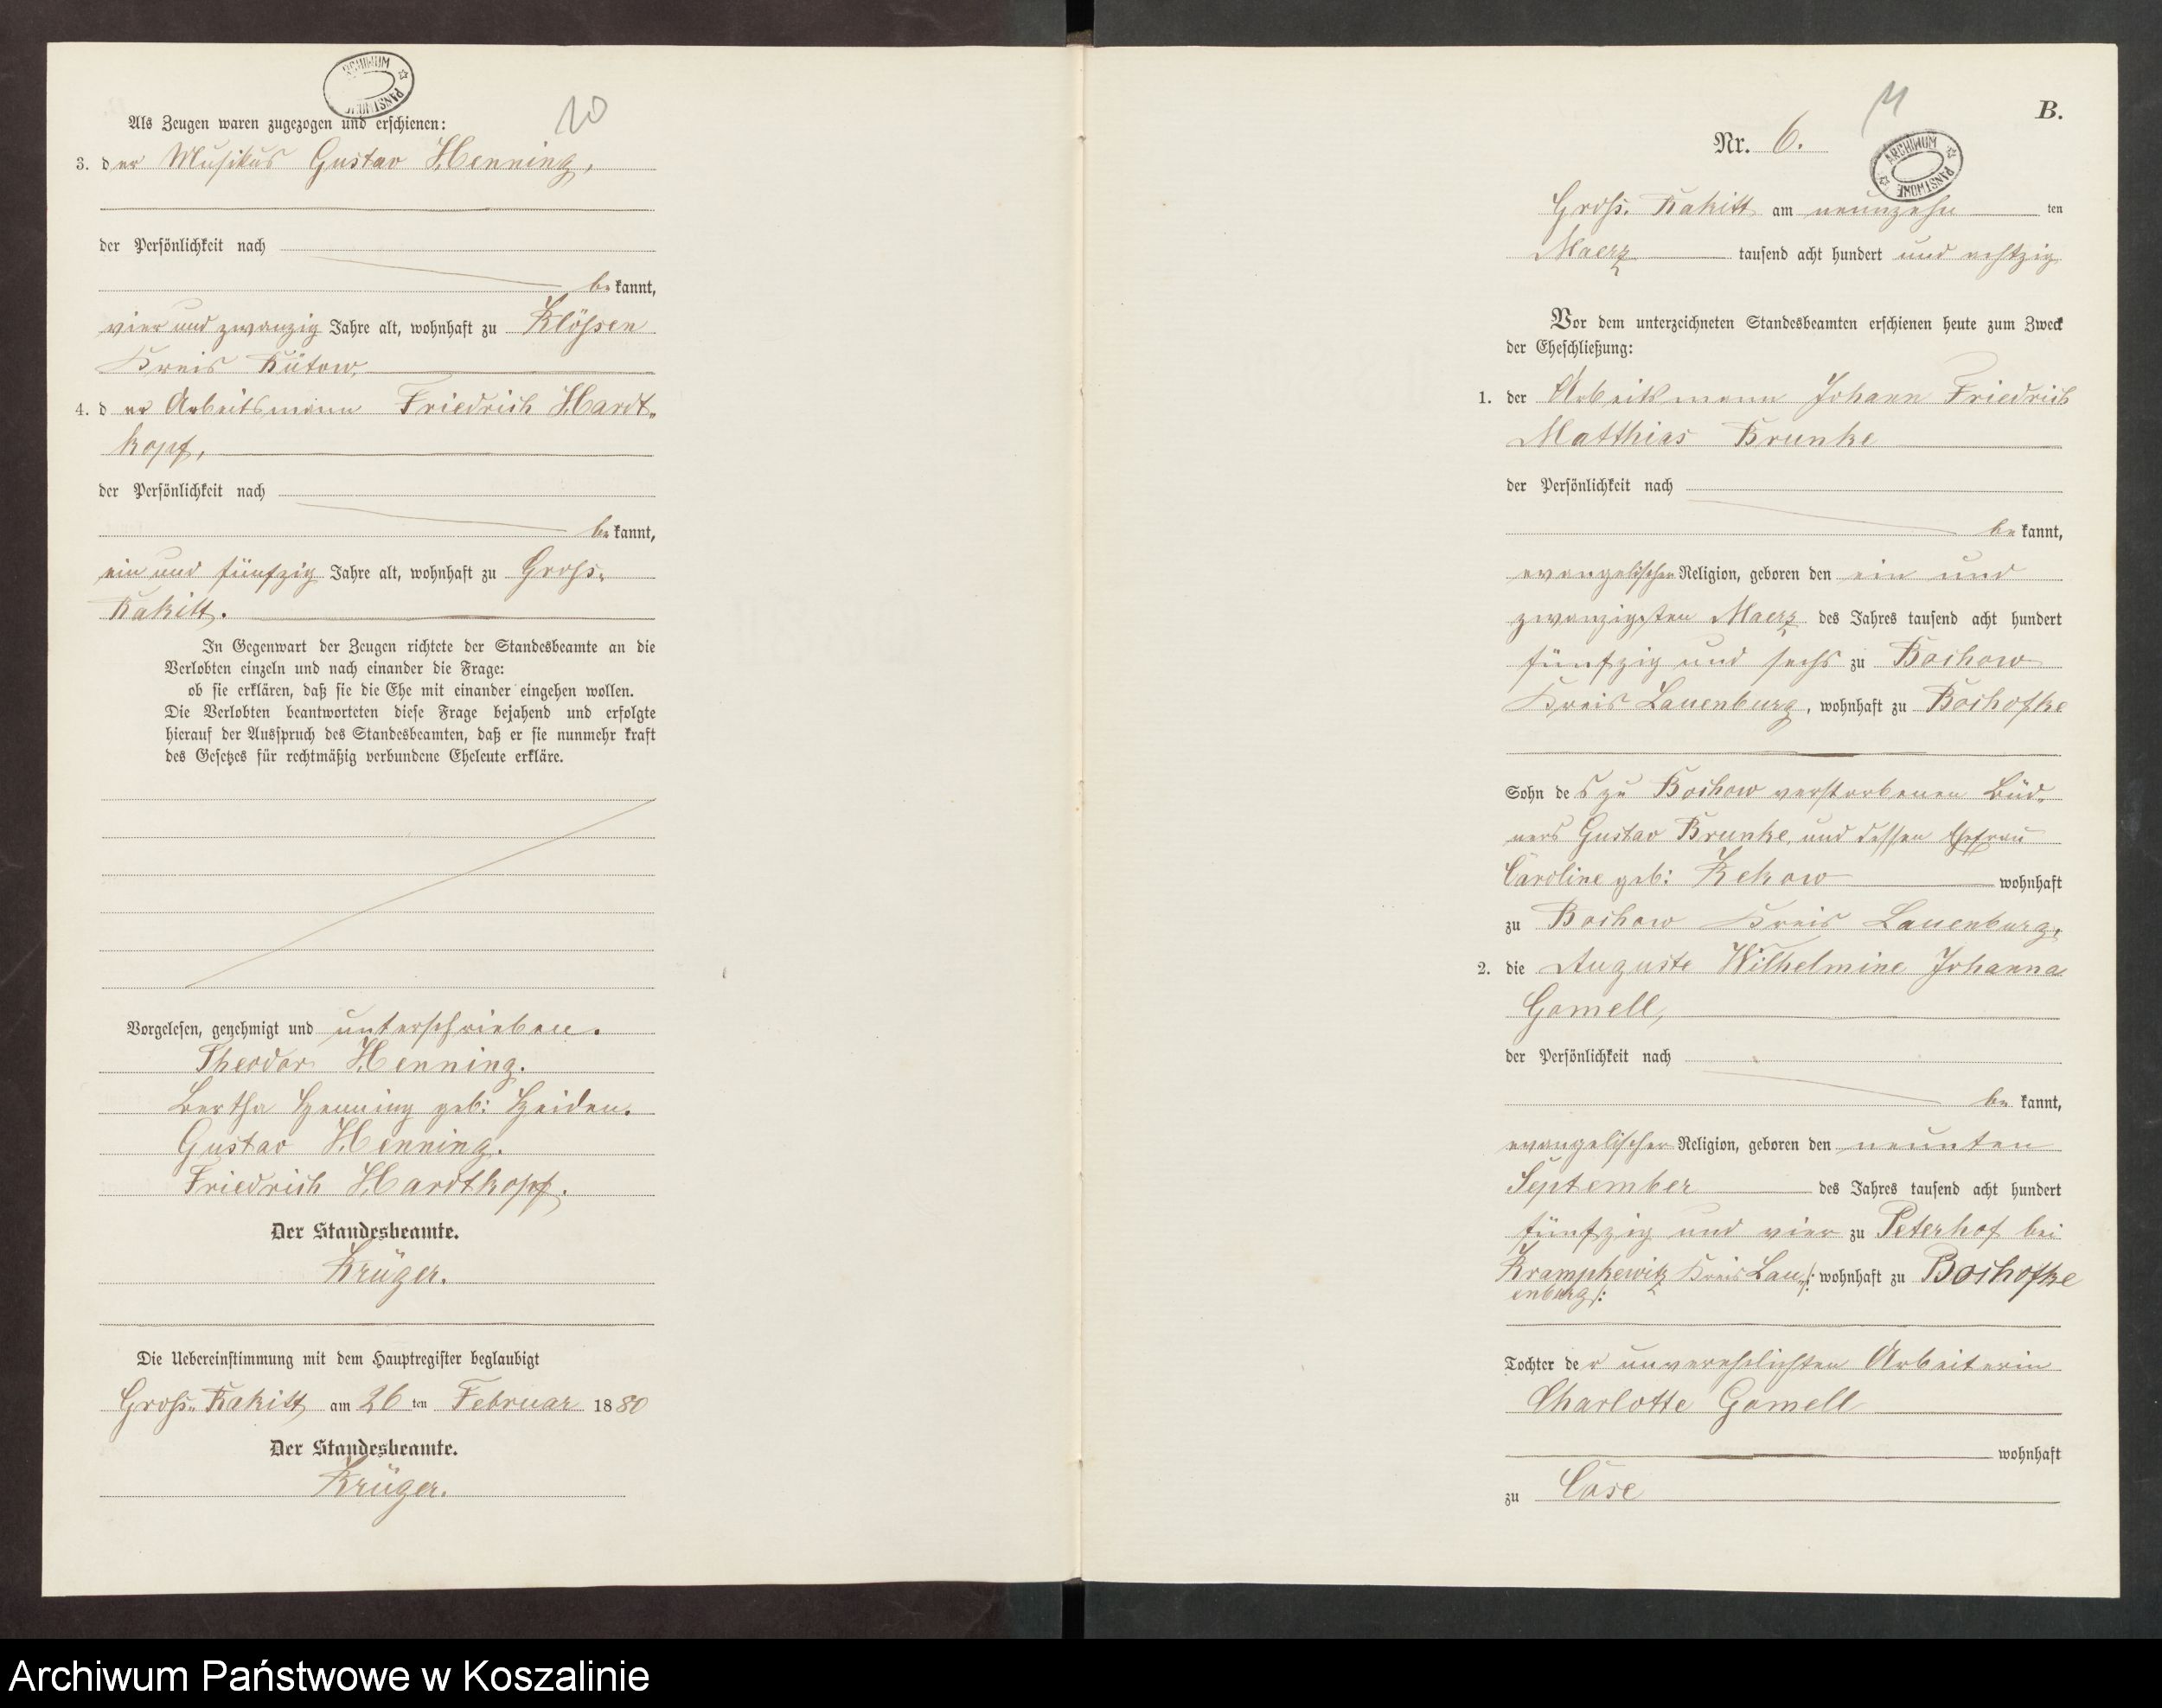 ARCHIWUM PAŃSTWOWE
10
Als Zeugen waren zugezogen und erschienen:
3. der Musikus Gustav Henning,
der Persönlichkeit nach
be kannt,
vier und zwanzig Jahre alt, wohnhaft zu Klößen
Kreis Bütow,
4. d er Arbeitsmann Friedrich Hardt-
kopf,
der Persönlichkeit nach
be kannt,
ein und fünfzig Jahre alt, wohnhaft zu Groß-
Rakitt.
In Gegenwart der Zeugen richtete der Standesbeamte an die
Verlobten einzeln und nach einander die Frage:
ob sie erklären, daß sie die Ehe mit einander eingehen wollen.
Die Verlobten beantworteten diese Frage bejahend und erfolgte
hierauf der Ausspruch des Standesbeamten, daß er sie nunmehr kraft
des Gesetzes für rechtmäßig verbundene Eheleute erkläre.
Vorgelesen, genehmigt und unterschrieben.
Theodor Henning.
Bertha Henning geb: Heiden.
Gustav Henning.
Friedrich Hardtkopf.
Der Standesbeamte.
Krüger.
Die Uebereinstimmung mit dem Hauptregister beglaubigt
Groß-Rakitt am 26 ten Februar 18 80
Der Standesbeamte.
Krüger.
11
B.
Nr. 6.
ARCHIWUM PAŃSTWOWE
Groß-Rakitt am neunzehn ten
Maerz tausend acht hundert und achtzig
Vor dem unterzeichneten Standesbeamten erschienen heute zum Zweck
der Eheschließung:
1. der Arbeitsmann Johann Friedrich
Matthias Brunke
der Persönlichkeit nach
be kannt,
evangelischer Religion, geboren den ein und
zwanzigsten Maerz des Jahres tausend acht hundert
fünfzig und sechs zu Bochow
Kreis Lauenburg, wohnhaft zu Bochofke
Sohn de s zu Bochow verstorbenen Büd-
ners Gustav Brunke, und dessen Ehefrau
Caroline geb: Kekow wohnhaft
zu Bochow Kreis Lauenburg,
2. die Auguste Wilhelmine Johanna
Gomell,
der Persönlichkeit nach
be kannt,
evangelischer Religion, geboren den neunten
September des Jahres tausend acht hundert
fünfzig und vier zu Peterhof bei
Krampkewitz Kreis Lau-/: wohnhaft zu Bochofke
enburg/:
Tochter de r unverehelichten Arbeiterin
Charlotte Gomell
wohnhaft
zu Cose
Archiwum Państwowe w Koszalinie